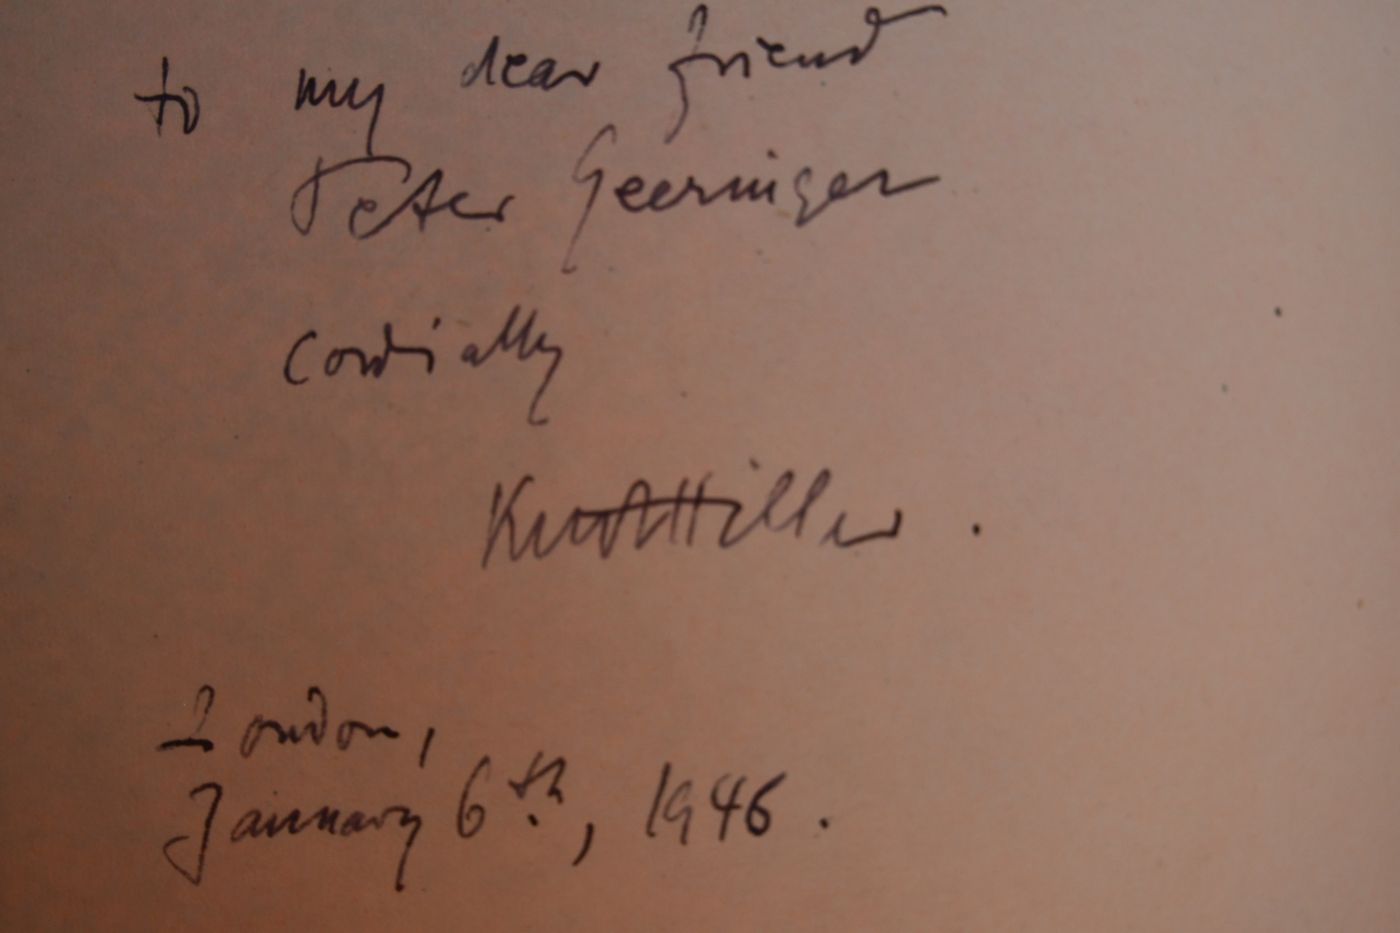 to my dear friend
Peter Geeringer
cordially
Kurt Hiller.
London,
January 6th, 1946.